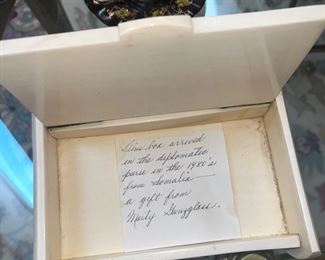 This box arrived
in the diplomatic
purse in the 1980's
from Somalia —
a gift from
Marty Ganzglass.